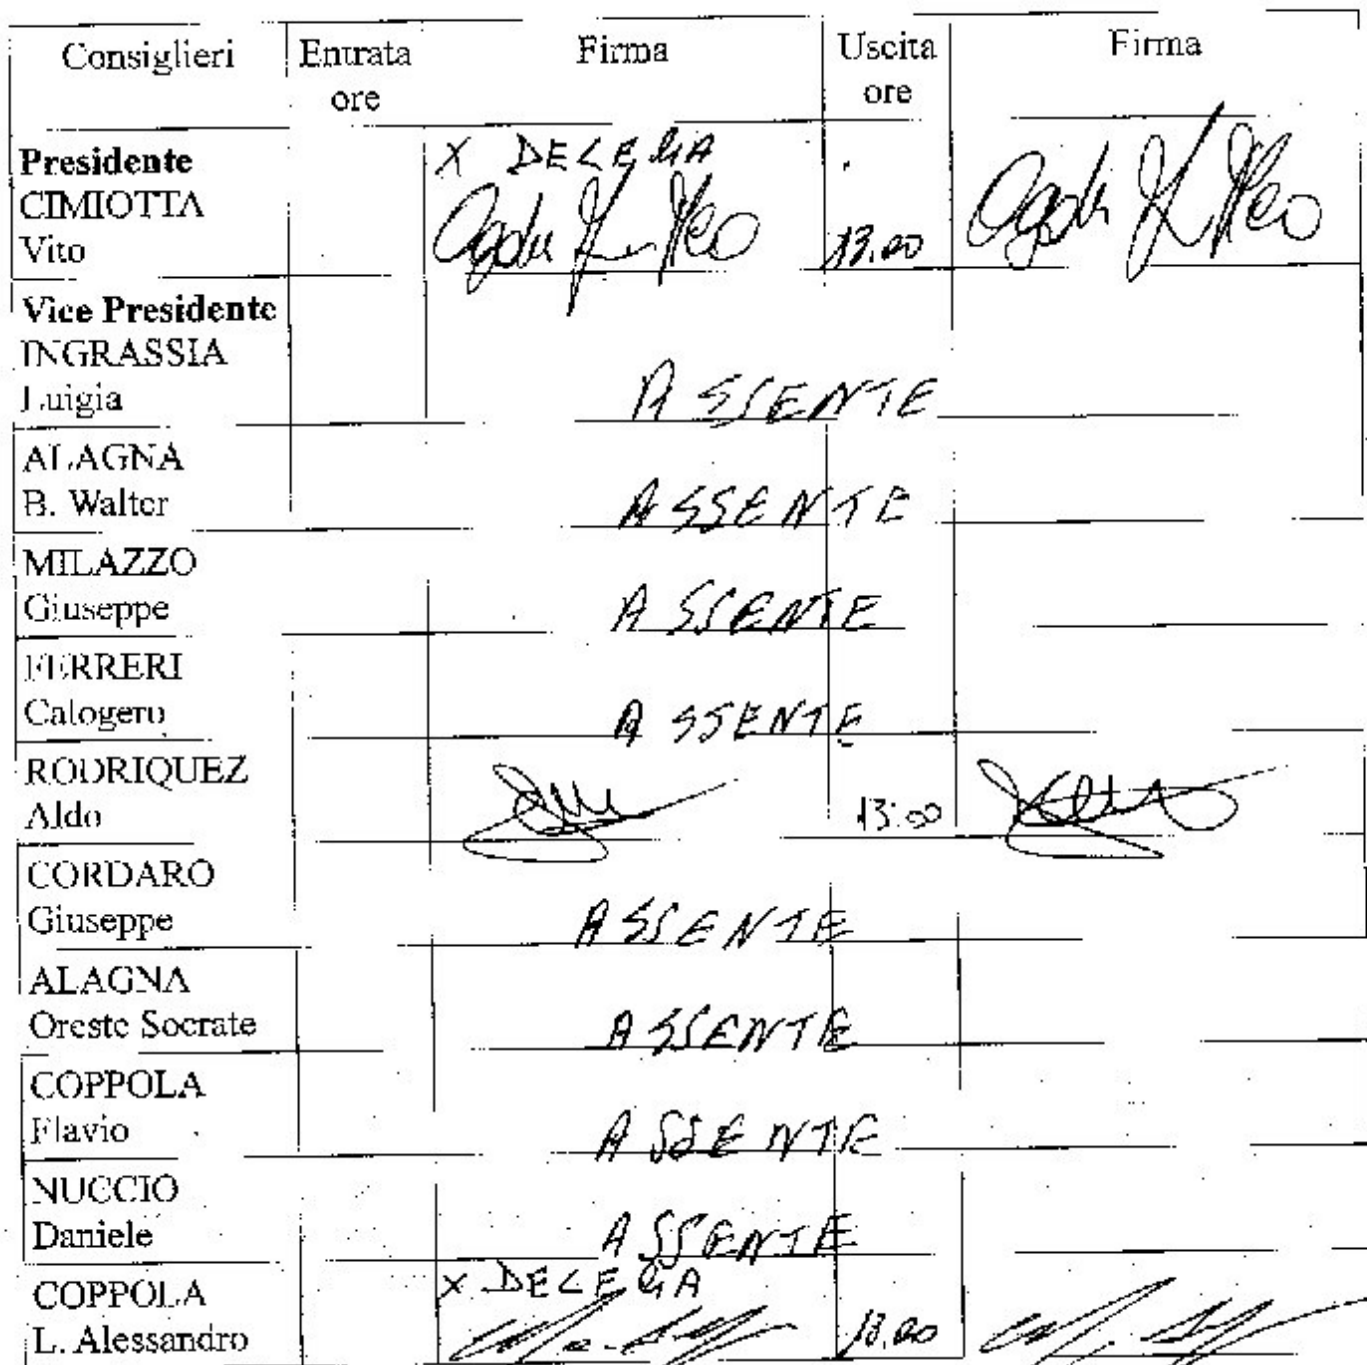 Consiglieri Entrata ore Firma Uscita ore Firma
Presidente X DELEGA
CIMIOTTA
Vito 13.00
Vice Presidente
INGRASSIA
Luigia ASSENTE
ALAGNA
B. Walter ASSENTE
MILAZZO
Giuseppe ASSENTE
FERRERI
Calogero ASSENTE
RODRIQUEZ
Aldo 13:00
CORDARO
Giuseppe ASSENTE
ALAGNA
Oreste Socrate ASSENTE
COPPOLA
Flavio ASSENTE
NUCCIO
Daniele ASSENTE
X DELEGA
COPPOLA
L. Alessandro 13.00